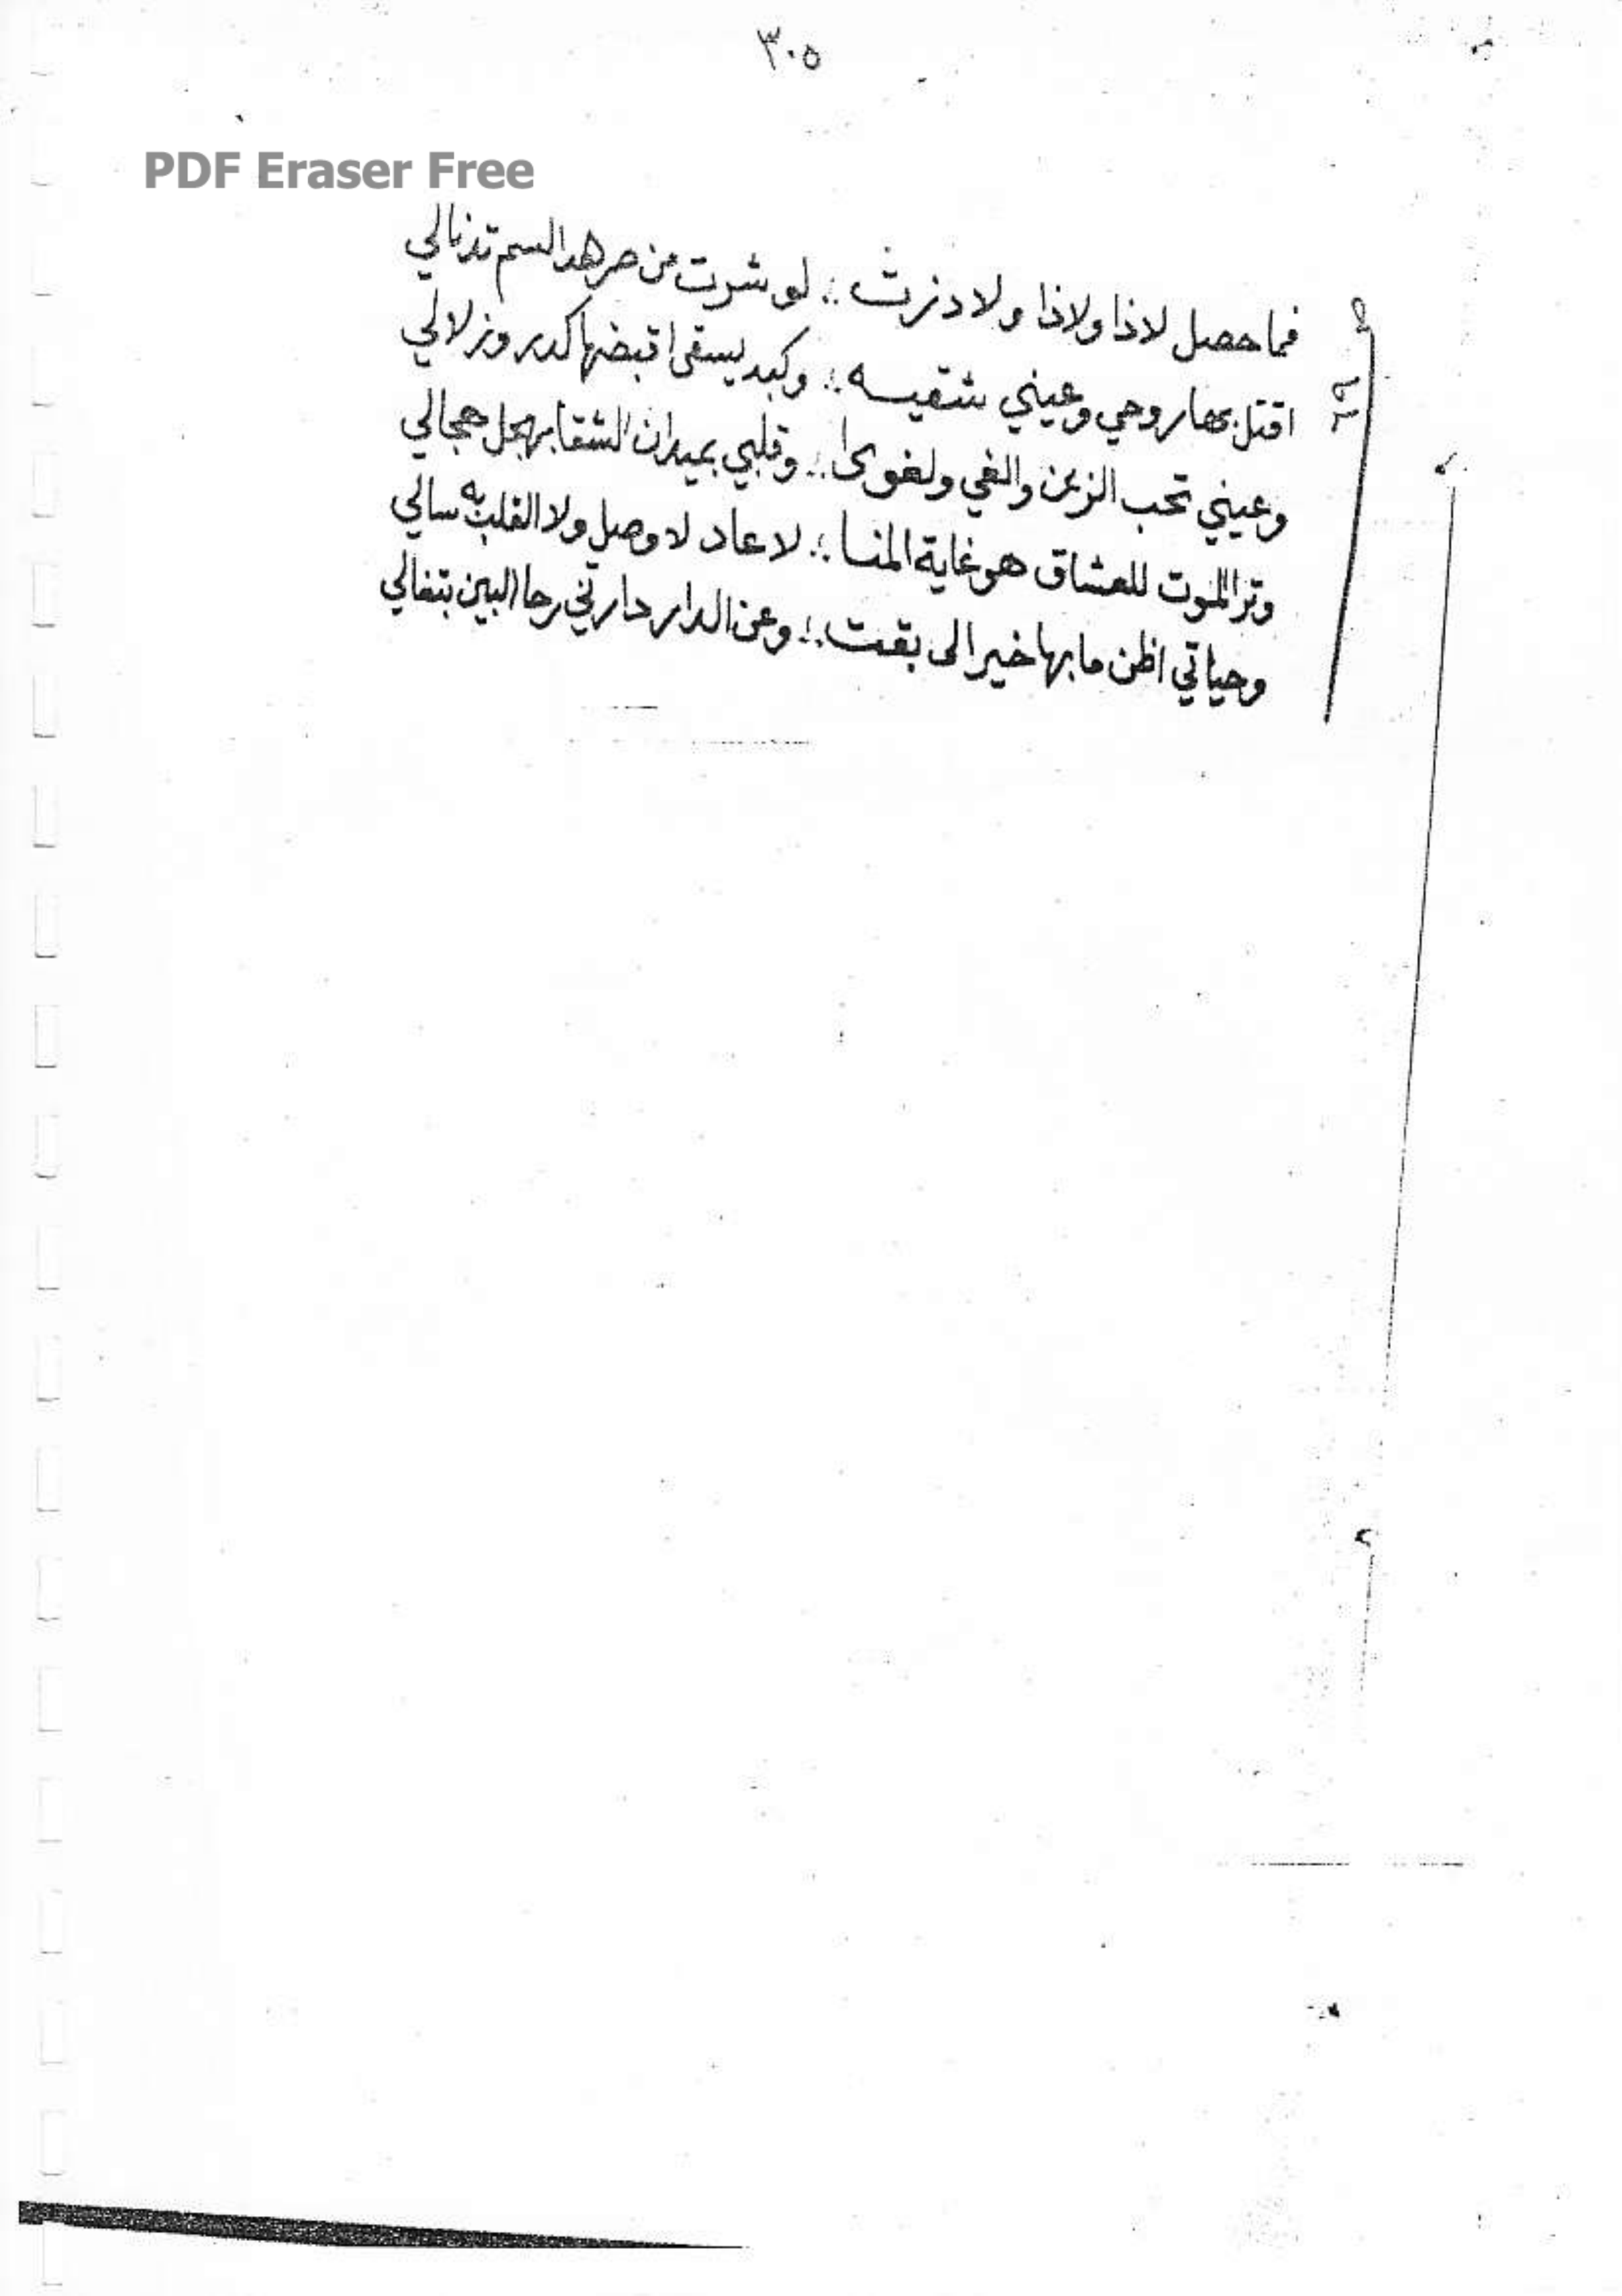 ٣٠٥
PDF Eraser Free
فما حصل لاذا ولاذا ولا دنرت ؛ لو شرت من حر هدا السم تدنالي
اقتل بها روحي وعيني شقيسه ؛ وكبد يسقى اقبضها كدر وزلالي
وعيني تحب الزين والغي ولغوى ؛ وقلبي بميدان الشقا برهجل حجالي
وترا الموت للعشاق هو غاية المنا ؛ لا عاد لا وصل ولا القلب به سالي
وحياتي اظن ما بها خير الى بقت ؛ وعن الدار دارتني رحا البين بتفالي